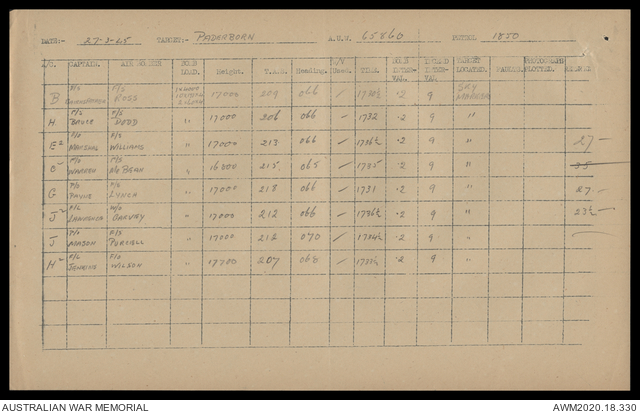 DATE:- 27-3-45 TARGET:- PADERBORN A.U.W. 65860 PETROL 1850
A/C. CAPTAIN. AIR BOMBER BOMB LOAD. Height. T.A.S. Heading. Used. TIME. BOMB INTER-VAL. TARGET LOCATED. FAILED. PHOTOGRAPH PLOTTED.
B F/S ROSS 17000 209 066 / 2 9 SKY MARKERS
H BRUCE F/S DODD " 17000 206 066 / 1732 .2 9 "
E² F/O F/S WILLIAMS " 17000 213 066 / 1736½ .2 9 " 27 —
F/O WARREN F/S McBEAN " 16000 215 065 / 1735 .2 9 " 35
G F/O PAYNE LYNCH " 17000 218 066 / 1731 .2 9 " 27 —
J² F/L LAWRENCE W/O GARVAY " 17000 212 066 / 1736½ .2 9 " 23½ —
J F/O MASON F/S PURCELL " 17000 212 070 / 1734½ .2 9 "
H² F/L JENKINS F/O WILSON " 17700 207 068 / .2 9 "
AUSTRALIAN WAR MEMORIAL AWM2020.18.330